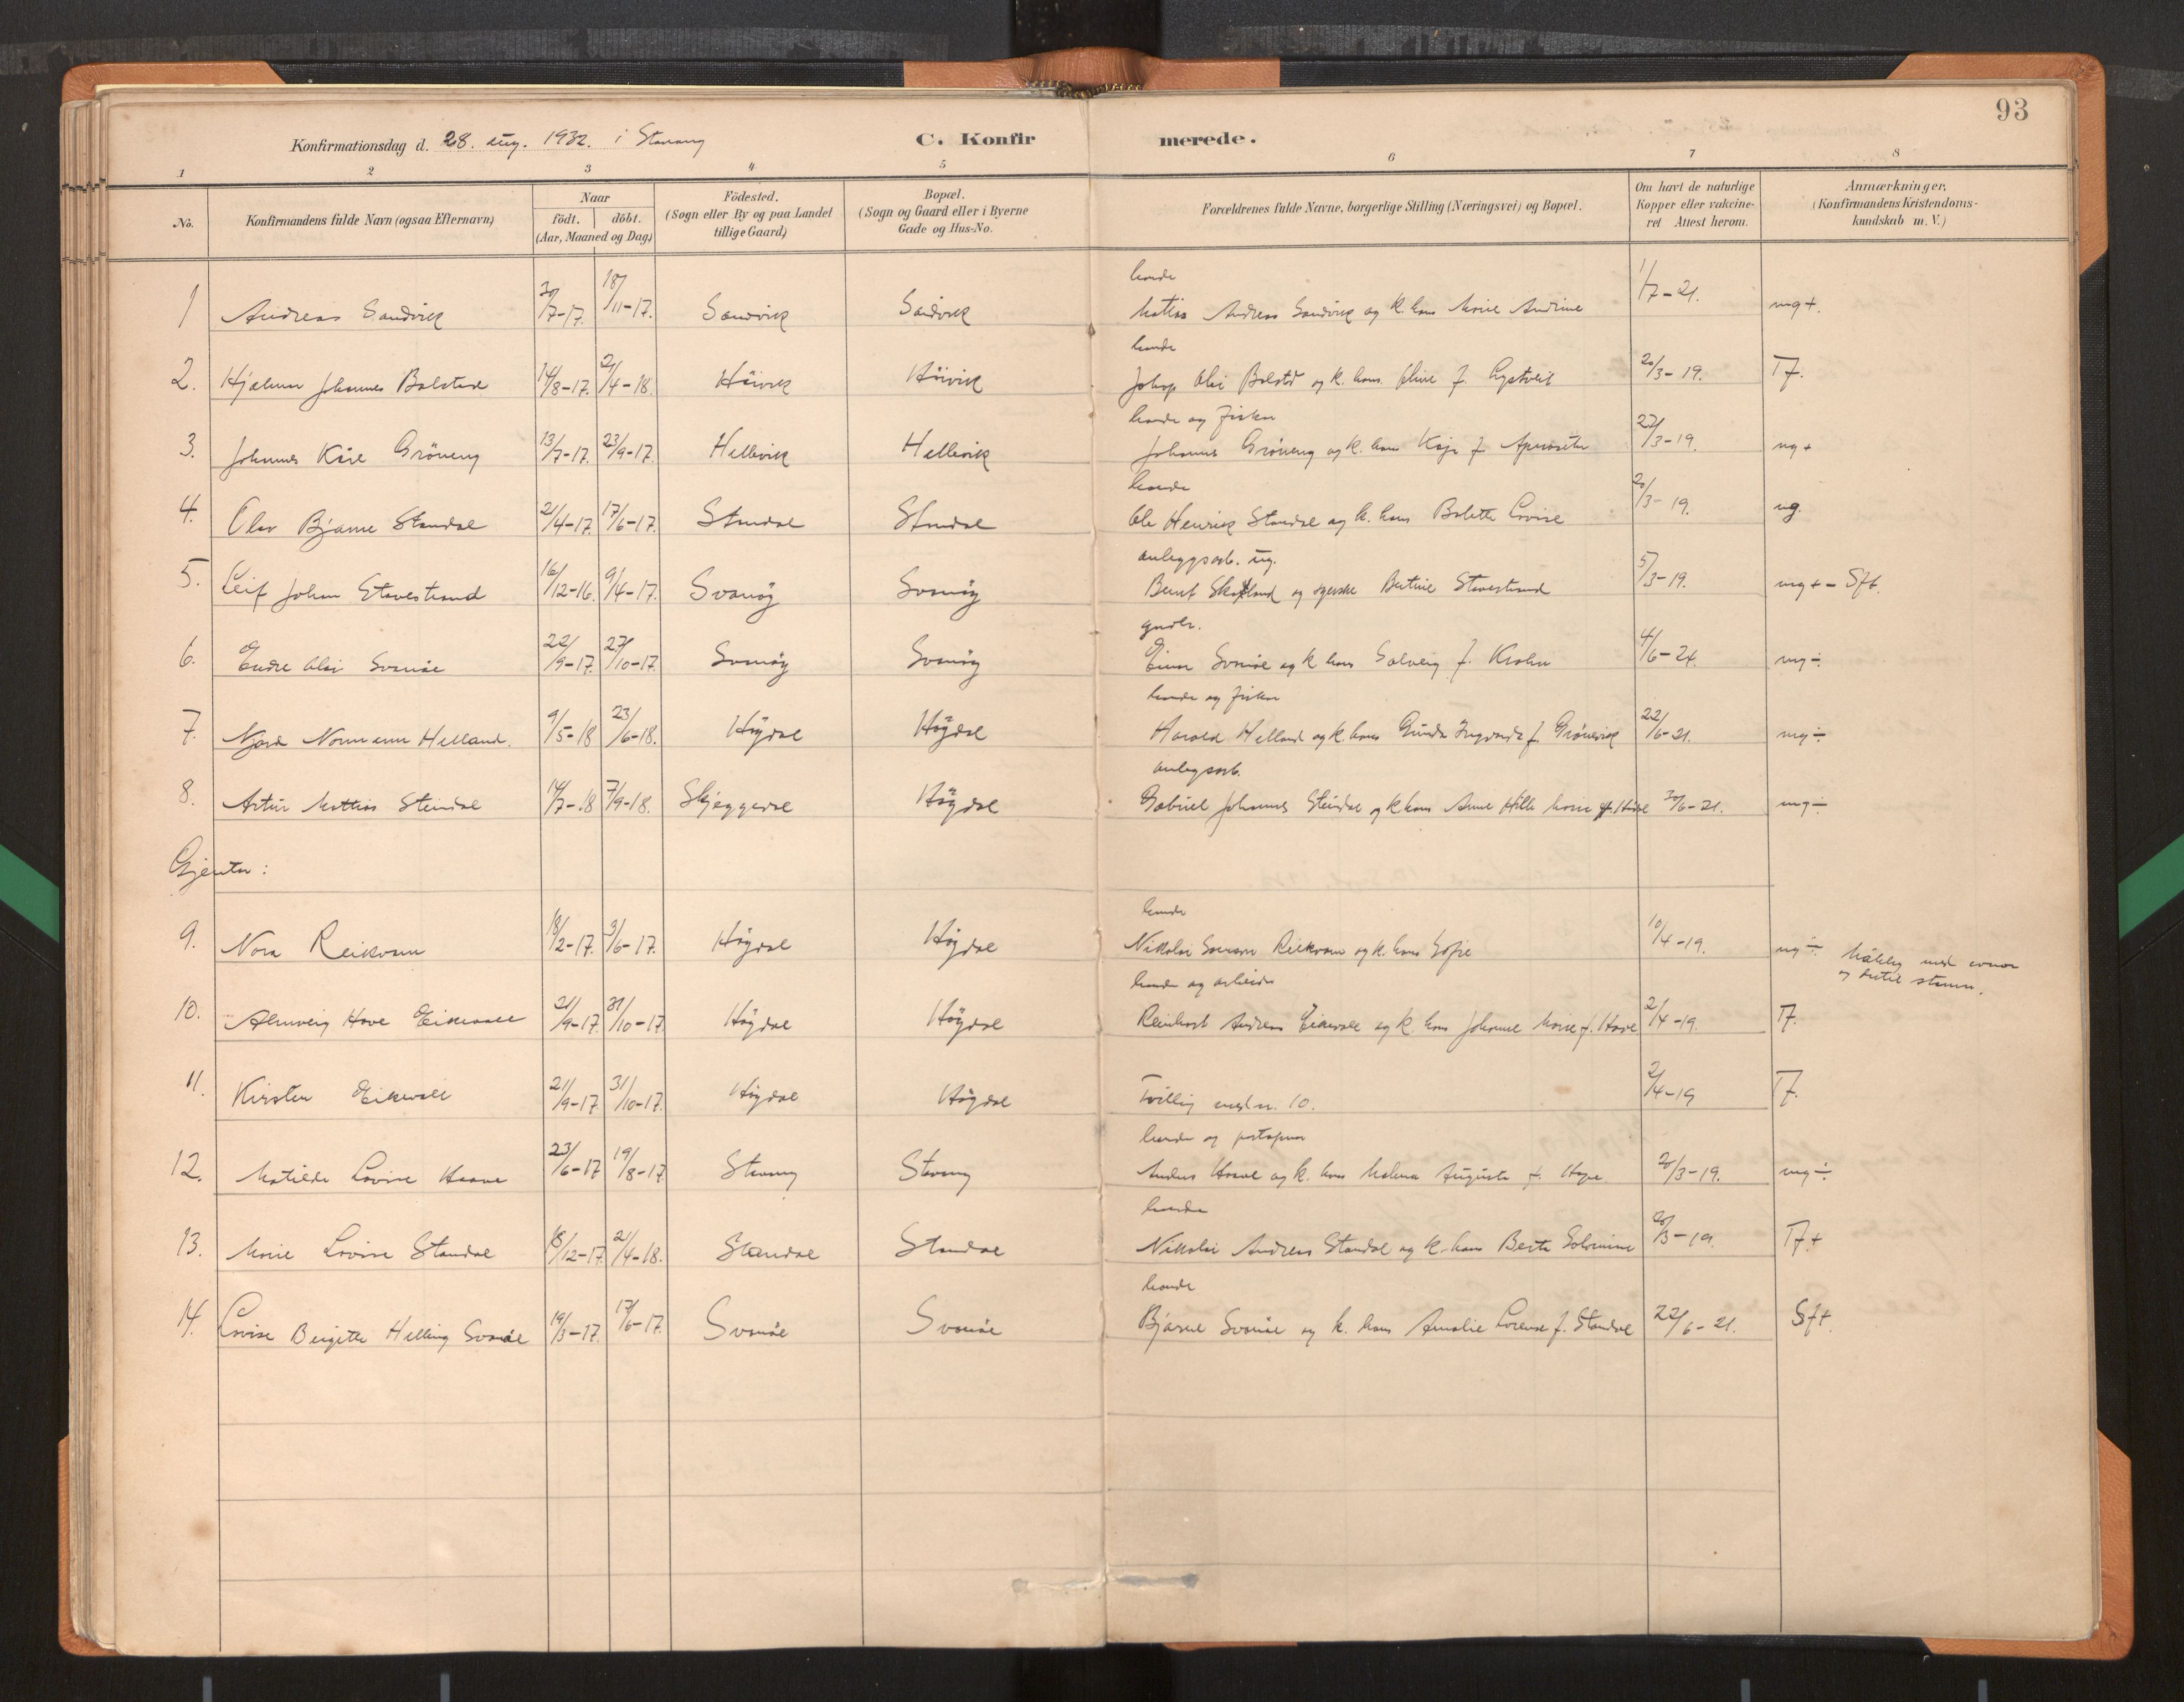 93
Konfirmationsdag d. 28. aug. 1932. i Stavang
C. Konfirmerede.
1 2 3 4 5 6 7 8
No.
Konfirmandens fulde Navn (ogsaa Efternavn)
Naar
födt. döbt.
(Aar, Maaned og Dag)
Födested.
(Sogn eller By og paa Landet
tillige Gaard)
Bopæl.
(Sogn og Gaard eller i Byerne
Gade og Hus-No.
Forældrenes fulde Navne, borgerlige Stilling (Næringsvei) og Bopæl.
Om havt de naturlige
Kopper eller vakcine-
ret Attest herom.
Anmærkninger,
(Konfirmandens Kristendoms-
kundskab m. V.)
bonde
1 Andreas Sandvik 30/7-17. 18/11-17. Sandvik Sandvik Matias Andreas Sandvik og k. hans Marie Andrine 1/7-21. mg+.
bonde
2. Hjalmar Johannes Bolstad 14/8-17. 21/4-18. Høivik Høivik Olai Bolstad og k. hans Oline f. Lystveit 20/3-19. Tf.
bonde og fisker
3. Johannes Kåre Grøneng 13/7-17. 23/9-17. Hellevik Hellevik Johannes Grøneng og k. hans Kaja f. 22/3-19. mg+
bonde
4. Olav Bjarne Standal 21/4-17. 17/6-17. Standal Standal Ole Henrik Standal og k. hans Bolette Lovise 20/3-19. mg.
anleggsarb. ug.
5. Leif Johan Stavestrand 16/12-16. 9/4-17. Svanøy Svanøy Bernt og Bertine Stavestrand 5/3-19. mg+ - Sft.
gardbr.
6. Endre Olai Svanøe 22/9-17. 27/10-17. Svanøy Svanøy Einar Svanøe og k hans Solveig f. Krohn 4/6-24. mg÷
bonde og fisker
7. Njord Normann Helland. 9/5-18 23/6-18. Høydal Høydal Harald Helland og k. hans Gunda Ingvarda f. Grønevik 22/6-21. mg÷
anlegsarb.
8. Artur Mattias Steindal 14/7-18 7/9-18. Skjeggedal Høydal Gabriel Johannes Steindal og k hans Anne Marie f. 30/6-21. mg÷
Gjenter:
bonde
9. Nora Reikvam 18/2-17. 3/6-17. Høydal Høydal Nikolai Reikvam og k. hans Sofie 10/4-19. mg÷ med
og stamm.
bonde og arbeider
10. Almveig Hove Eikevoll 21/9-17. 31/10-17. Høydal Høydal Reinhart Andreas Eikevoll og k. hans Johanne Marie f. Hove 2/4-19. Tf.
11. Kirsten Eikevoll 21/9-17. 31/10-17. Høydal Høydal Tvilling med nr. 10. 2/4-19 Tf.
bonde og poståpner
12. Matilde Lovise Haave 23/6-17 19/8-17. Stavang Stavang Anders Haave og k. hans Malena Augusta f. Hope 20/3-19. mg÷
bonde
13. Marie Lovise Standal 18/12-17. 21/4-18. Standal Standal Nikolai Andreas Standal og k. hans Berta Solomine 20/3-19. Tf+
bonde
14. Lovise Birgitte Helling Svanøe 19/3-17. 17/6-17. Svanøe Svanøe Bjarne Svanøe og k. hans Amalie Lorense f. Standal 22/6-21. Sf+.